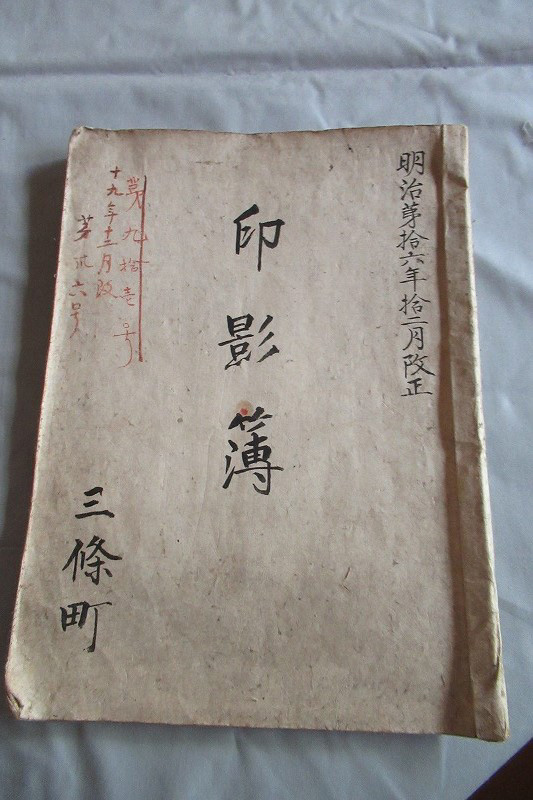 明治第拾六年拾二月改正
印影簿
第九拾壱号
十九年十二月改
第 六号
三條町